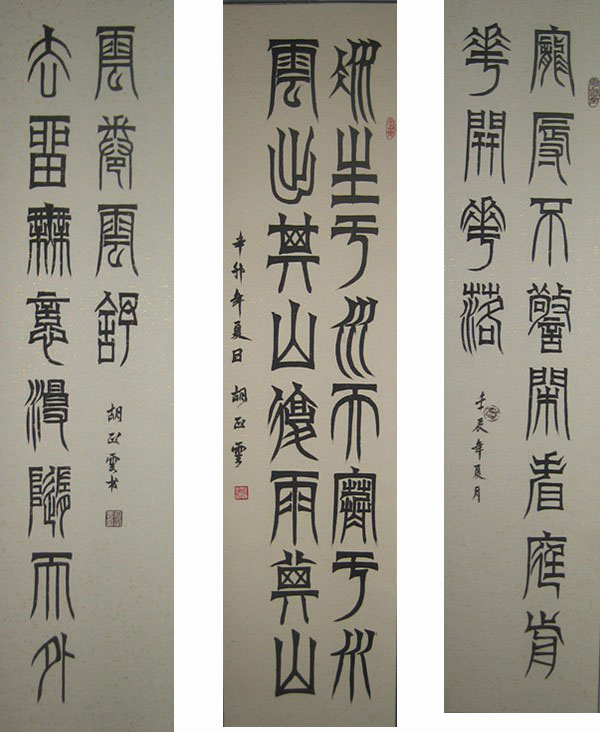 寵辱不驚閑看庭前
華開華落
壬辰年夏月
冰生于水而寒于水
雲出其山復雨其山
辛卯年夏日 胡正雲
去留無意漫隨天外
雲卷雲舒
胡正雲書